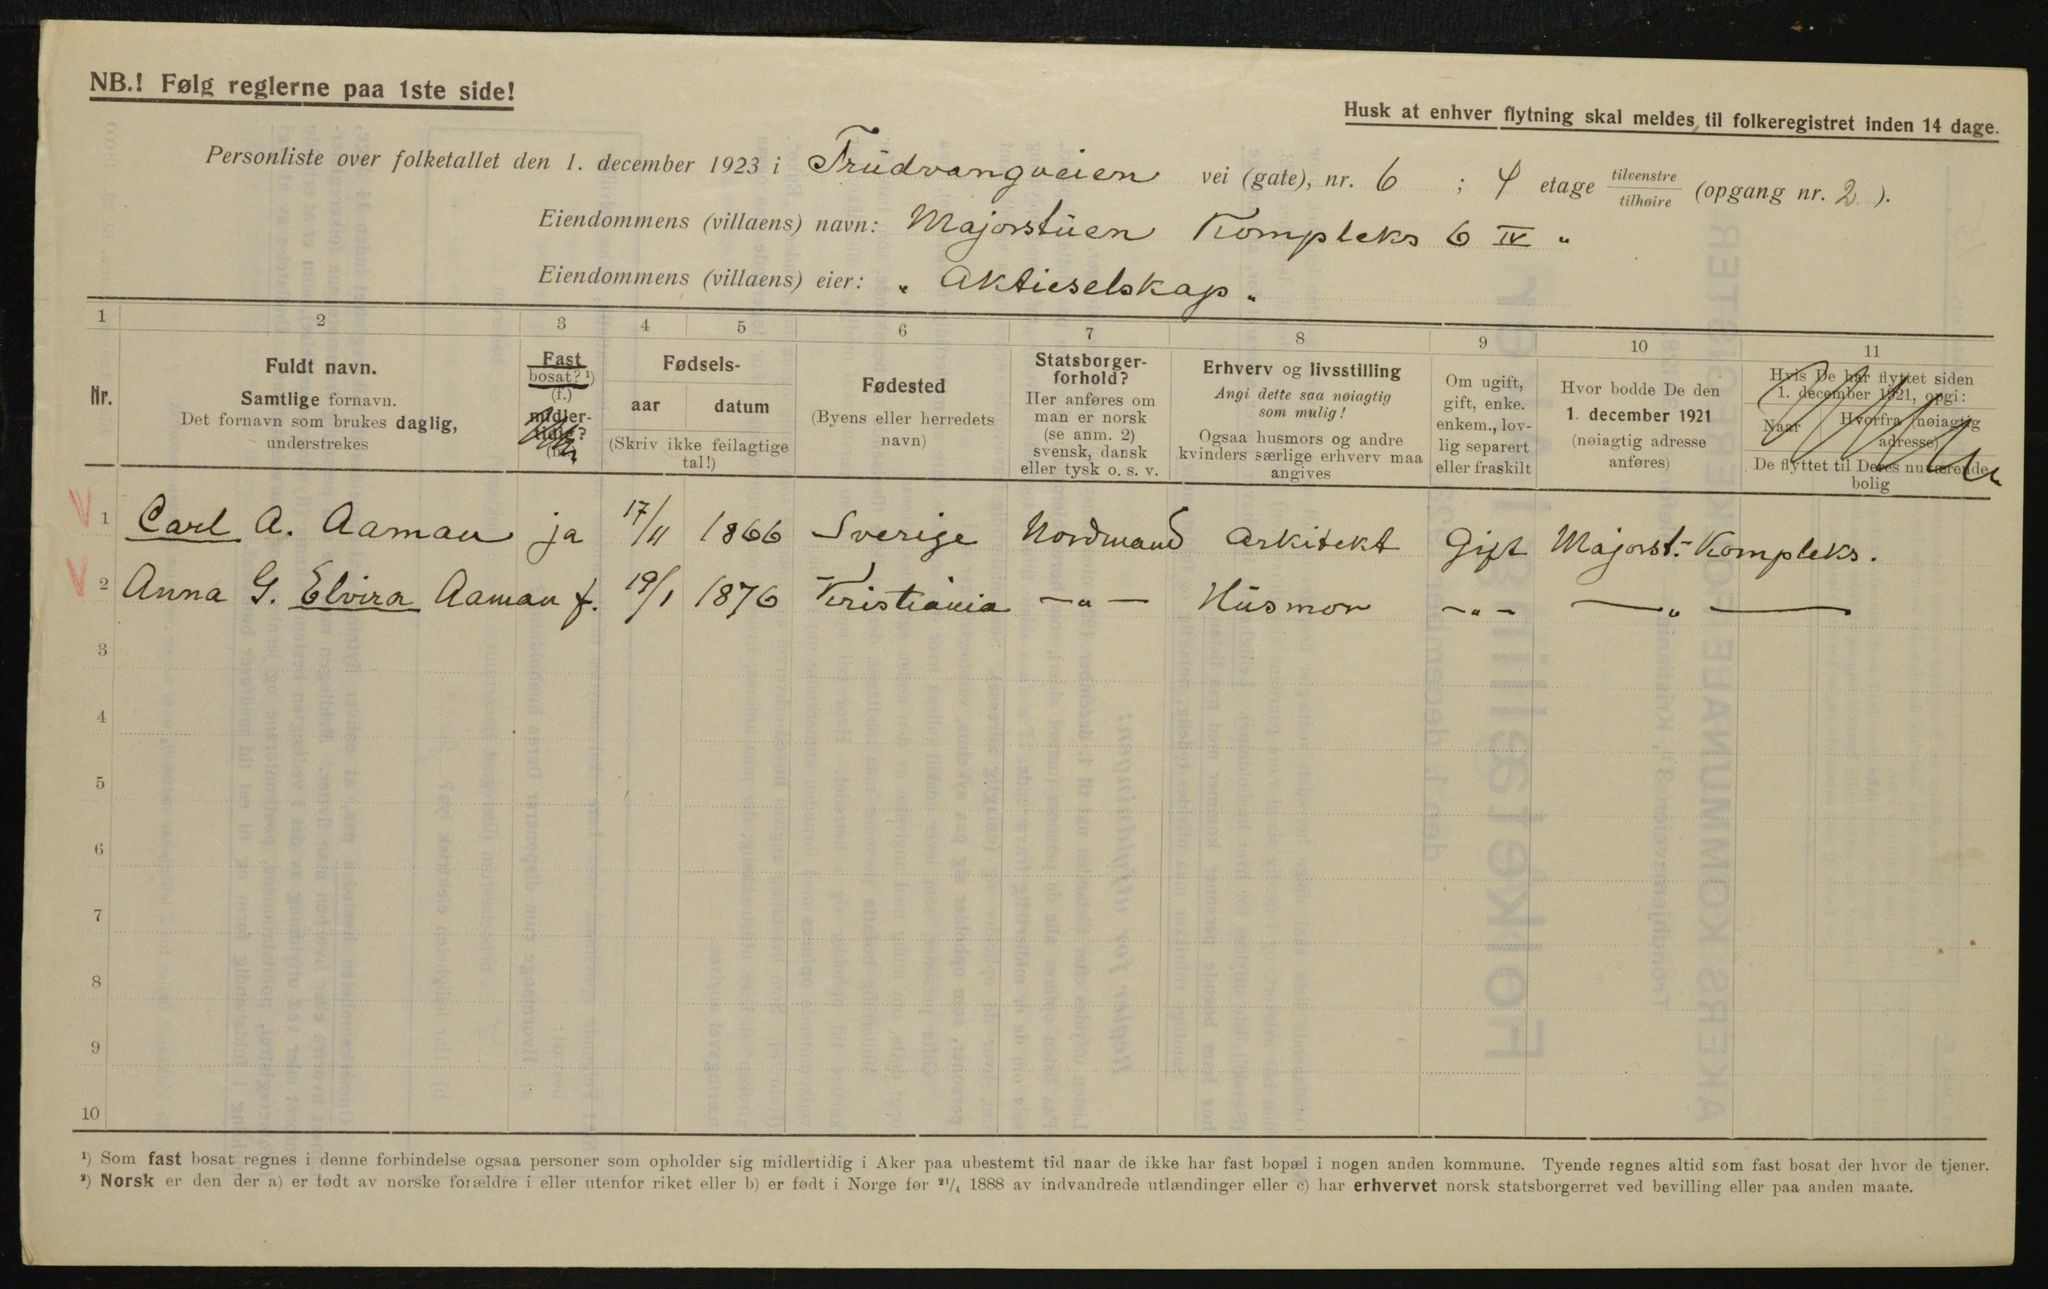 NB.! Følg reglerne paa 1ste side!
Husk at enhver flytning skal meldes til folkeregistret inden 14 dage.
Personliste over folketallet den 1. december 1923 i Frudvangveien vei (gate), nr. 6 ; 4 etage tilvenstre/tilhøire (opgang nr. 2 ).
Eiendommens (villaens) navn: Majorstuen Kompleks 6 IV "
Eiendommens (villaens) eier: " Aktieselskap "
1 2 3 4 5 6 7 8 9 10 11
Nr.
Fuldt navn.
Samtlige fornavn.
Det fornavn som brukes daglig,
understrekes
Fast
bosat? ¹)
(f.)
midler-
tidig?
Fødsels-
aar datum
(Skriv ikke feilagtige
tal!)
Fødested
(Byens eller herredets
navn)
Statsborger-
forhold?
Her anføres om
man er norsk
(se anm. 2)
svensk, dansk
eller tysk o. s. v.
Erhverv og livsstilling
Angi dette saa nøiagtig
som mulig!
Ogsaa husmors og andre
kvinders særlige erhverv maa
angives
Om ugift,
gift, enke.
enkem., lov-
lig separert
eller fraskilt
Hvor bodde De den
1. december 1921
(nøiagtig adresse
anføres)
Hvis De har flyttet siden
1. december 1921, opgi:
Naar Hvorfra (nøiagtig
adresse)
De flyttet til Deres nuværende
bolig
1 Carl A. Aaman ja 17/11 1866 Sverige Nordmand Arkitekt Gift Majorst.- Kompleks.
2 Anna G. Elvira Aaman f. 19/1 1876 Kristiania — " — Husmor — " — — " —
3
4
5
6
7
8
9
10
¹) Som fast bosat regnes i denne forbindelse ogsaa personer som opholder sig midlertidig i Aker paa ubestemt tid naar de ikke har fast bopæl i nogen anden kommune. Tyende regnes altid som fast bosat der hvor de tjener.
²) Norsk er den der a) er født av norske forældre i eller utenfor riket eller b) er født i Norge før ²¹/₄ 1888 av indvandrede utlændinger eller c) har erhvervet norsk statsborgerret ved bevilling eller paa anden maate.